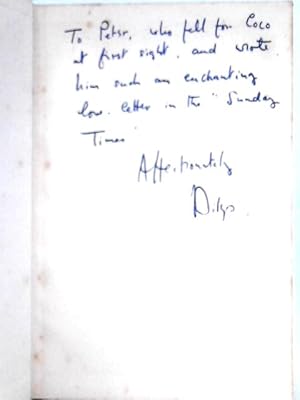 To Peter, who fell for Coco
at first sight, and wrote
him such an enchanting
love-letter in the "Sunday
Times"
Affectionately
Dilys